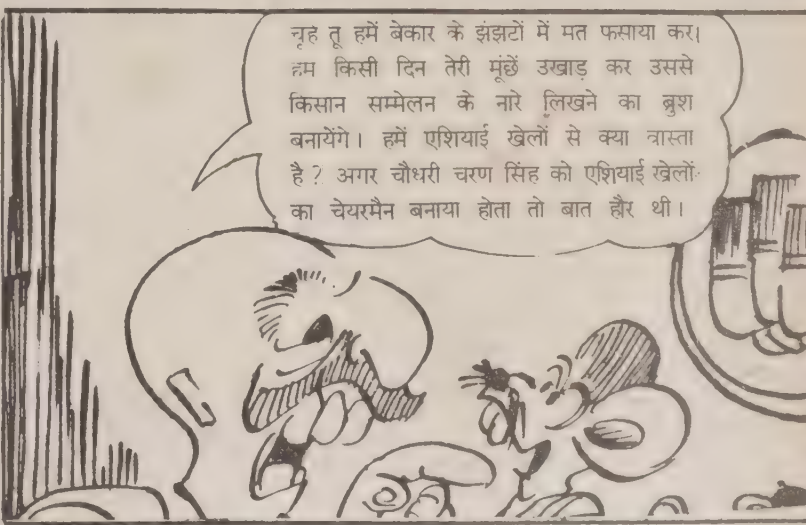 चूहे तू हमें बेकार के झंझटों में मत फसाया कर।
हम किसी दिन तेरी मूंछें उखाड़ कर उससे
किसान सम्मेलन के नारे लिखने का ब्रुश
बनायेंगे। हमें एशियाई खेलों से क्या वास्ता
है? अगर चौधरी चरण सिंह को एशियाई खेलों
का चेयरमैन बनाया होता तो बात हौर थी।